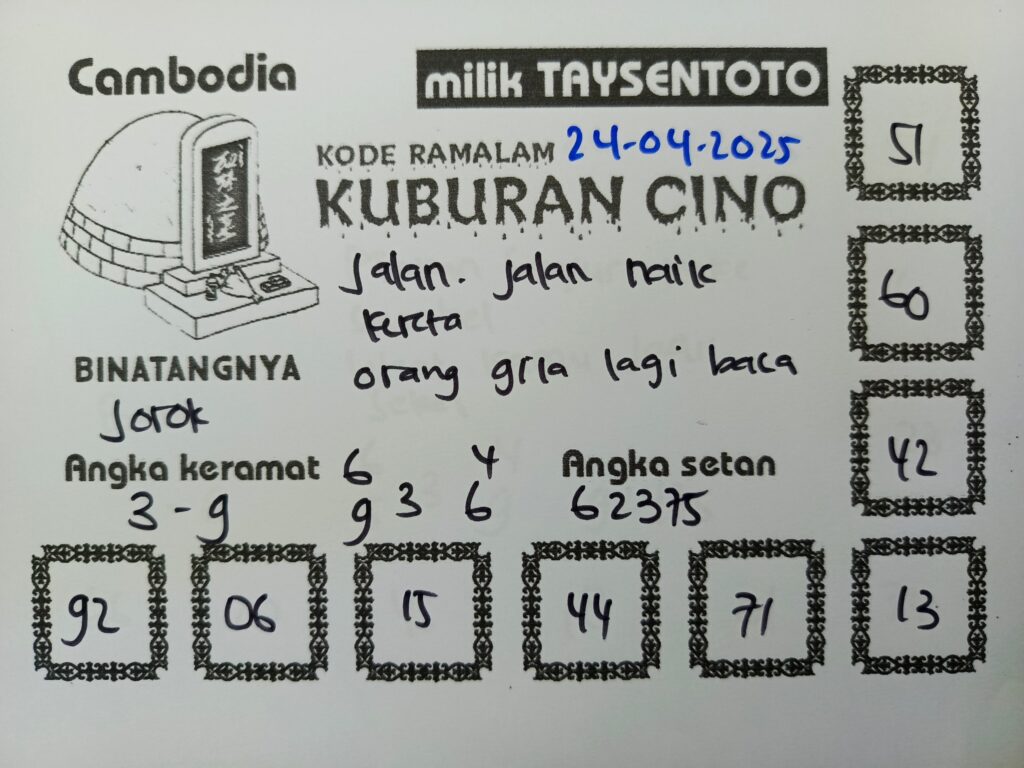 Cambodia
milik TAYSENTOTO
KODE RAMALAM 24-04-2025
KUBURAN CINO
Jalan. jalan naik
kereta
orang gila lagi baca
BINATANGNYA
Jorok
Angka keramat
3 - 9
6 4
9 3 6
Angka setan
62375
51
60
42
92 06 15 44 71 13